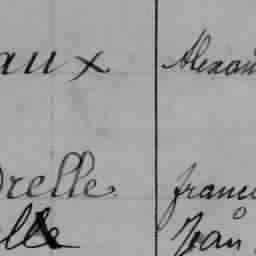 aux Alexan
relle. franc
lle Jean